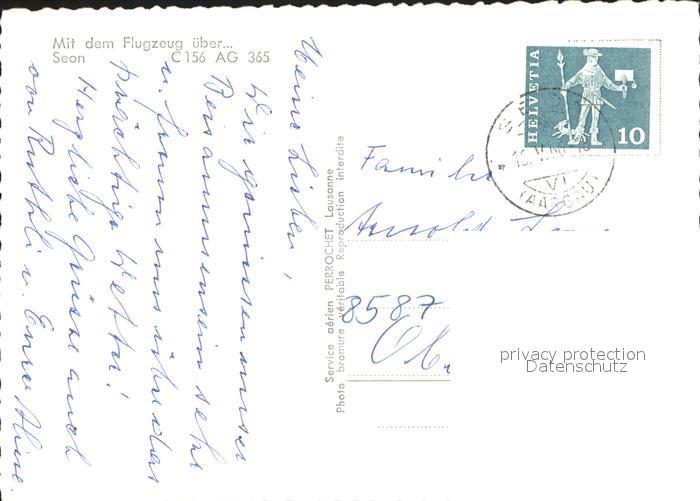 Mit dem Flugzeug über...
Seon C 156 AG 365
Meine Lieben,
Wir geniessen unser
Beisammensein sehr
u. freuen uns über das
prächtige Wetter!
Herzliche Grüsse auch
von Ruthli u. Eurer Aline.
Service aérien PERROCHET Lausanne
Photo bromure véritable Reproduction interdite
HELVETIA
10
VI
(AARGAU)
Familie
Arnold
8587
Ob.
privacy protection
Datenschutz